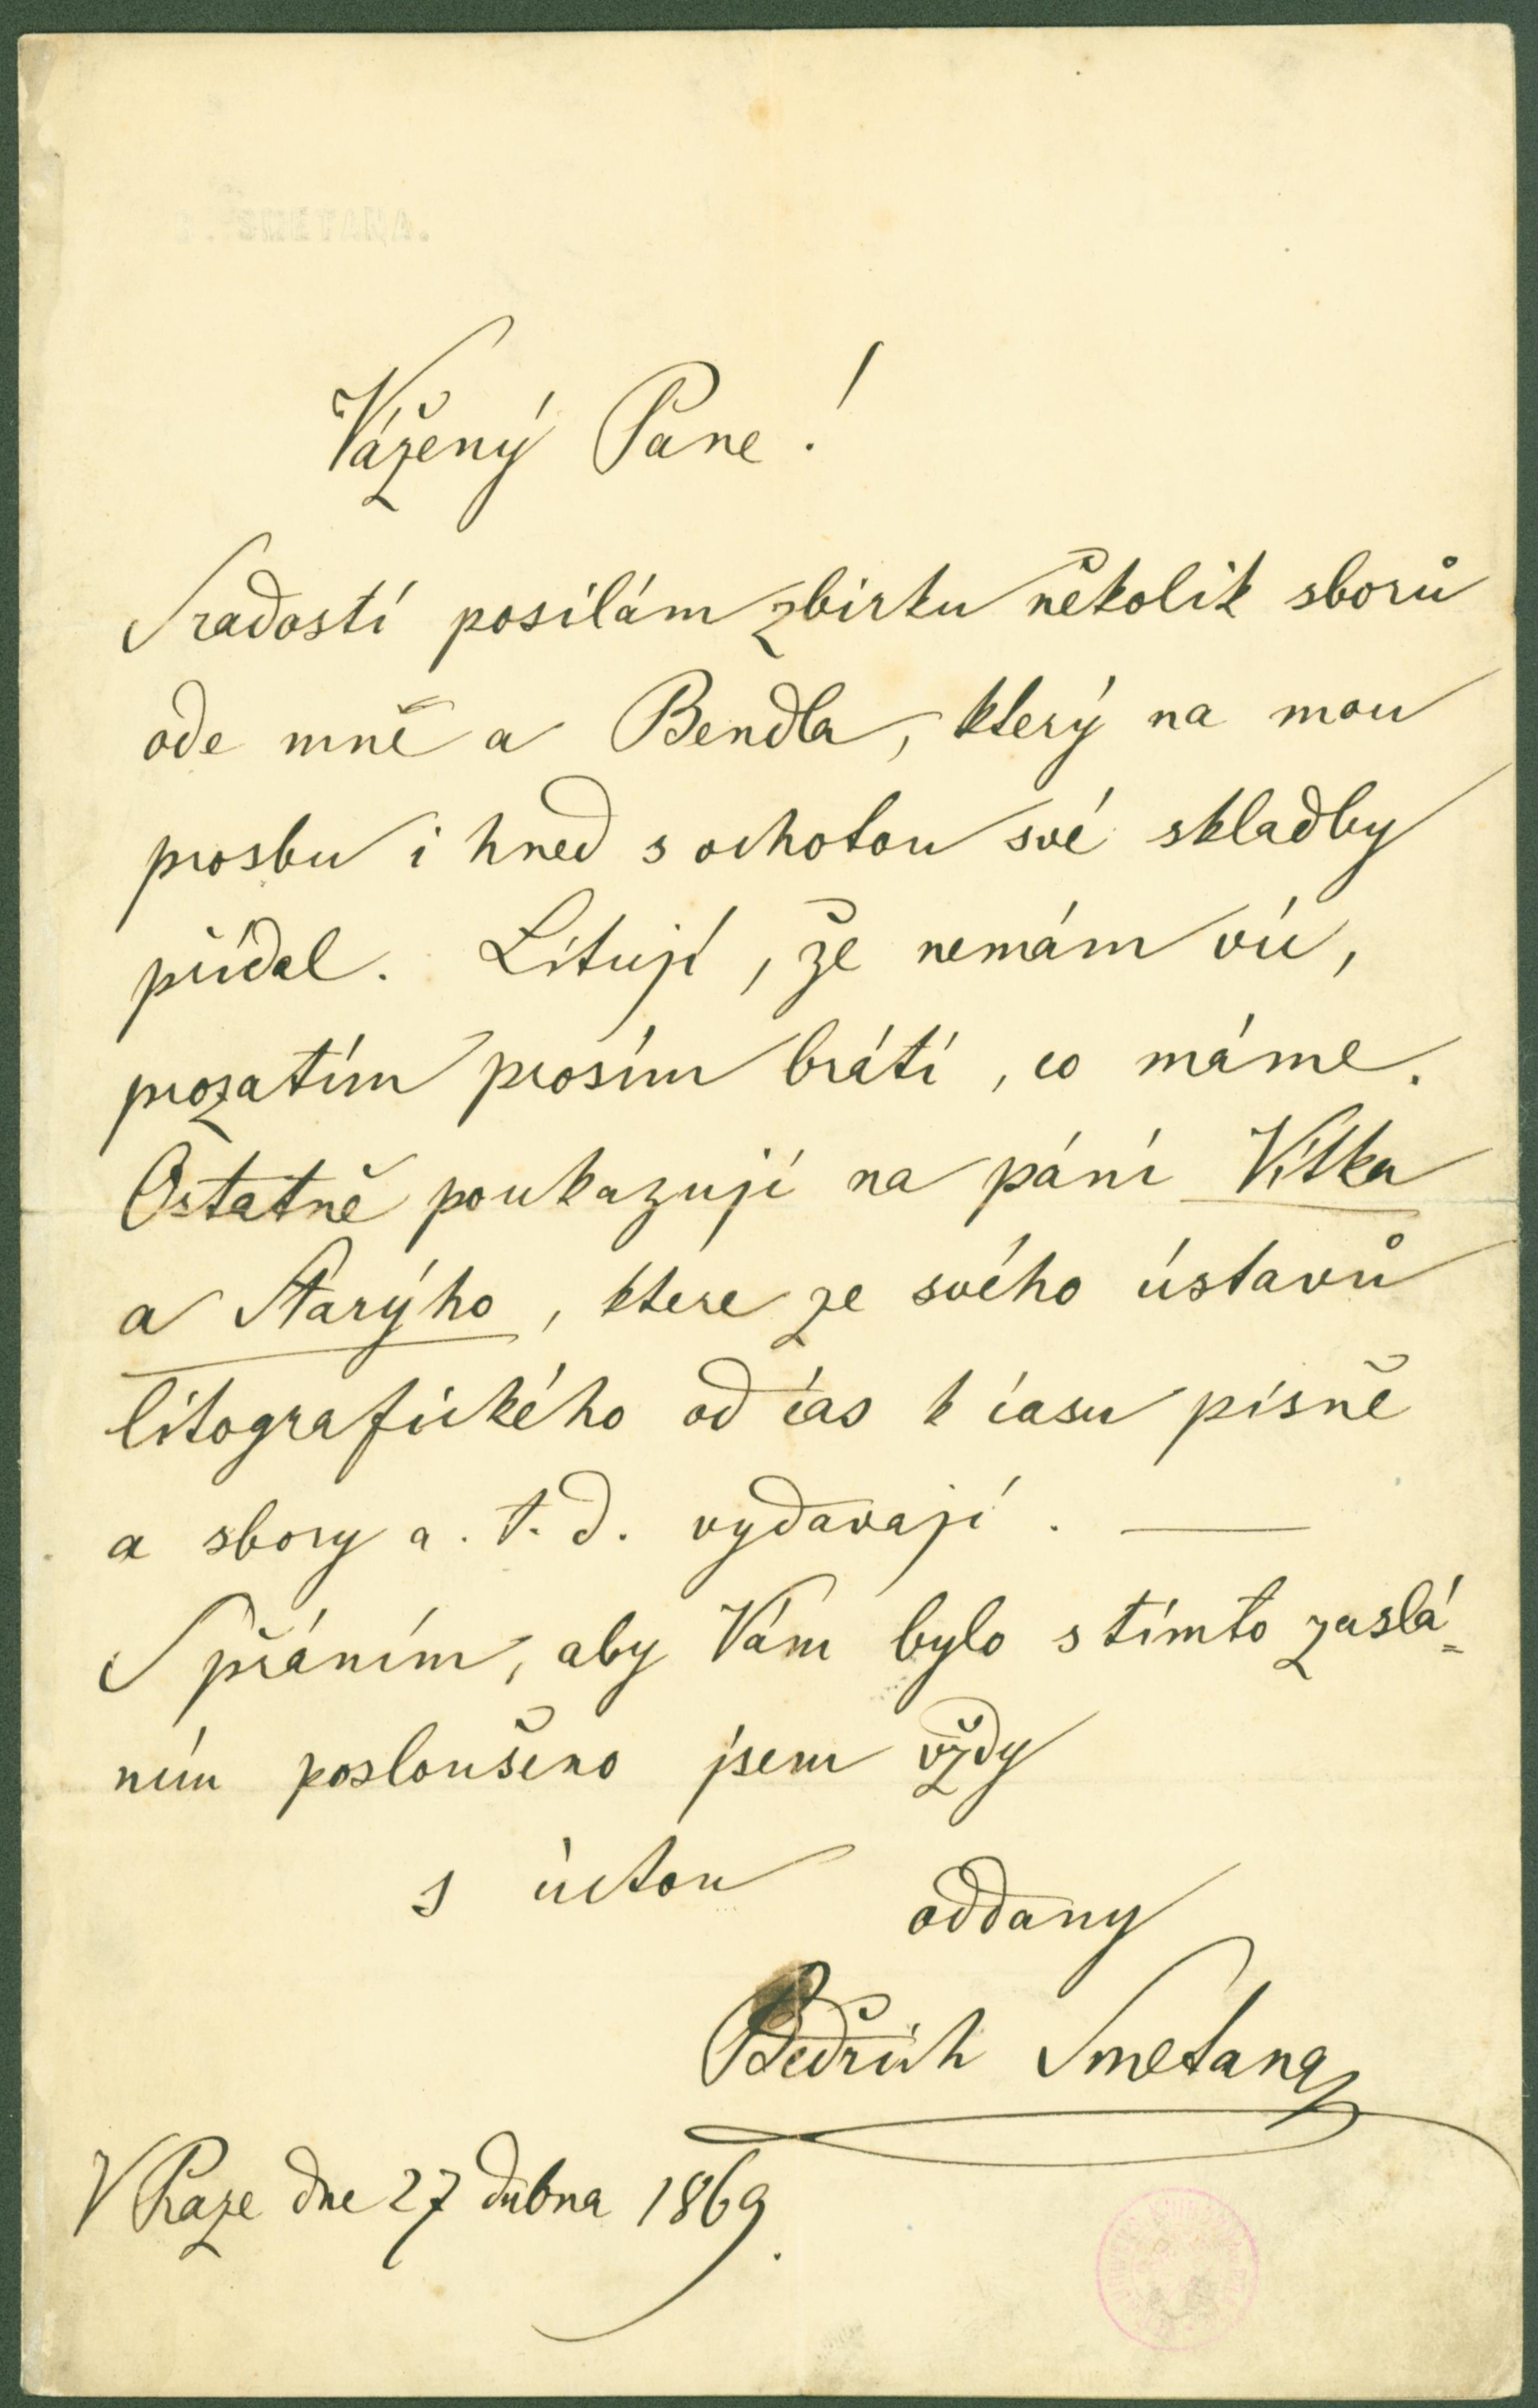 Vážený Pane!
S radostí posílám zbirku několik sborů
ode mně a Bendla, který na mou
prosbu i hned s ochotou své skladby
přidal. Lituji, že nemám víc,
prozatím prosím bráti, co máme.
Ostatně poukazuji na pání Vítka
a Starýho, ktere ze svého ústavů
litografického od čas k času písně
a sbory a. t. d. vydavají. —
S přáním, aby Vám bylo s tímto zaslá=
ním poslouženo jsem vždy
s úctou oddany
Bedřich Smetana
V Praze dne 27 dubna 1869.